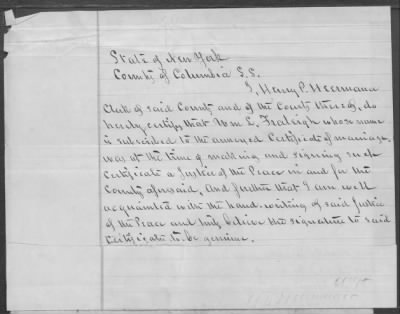 State of New York
County of Columbia S.S.
I, Henry P.
Clerk of said County and of the Courts thereof, do
hereby certify that Wm L. Fraleigh whose name
is subscribed to the annexed Certificate of marriage,
was at the time of making and signing such
Certificate a Justice of the Peace in and for the
County aforesaid, And further that I am well
acquainted with the hand-writing of said Justice
of the Peace and truly believe the signature to said
Certificate to be genuine.